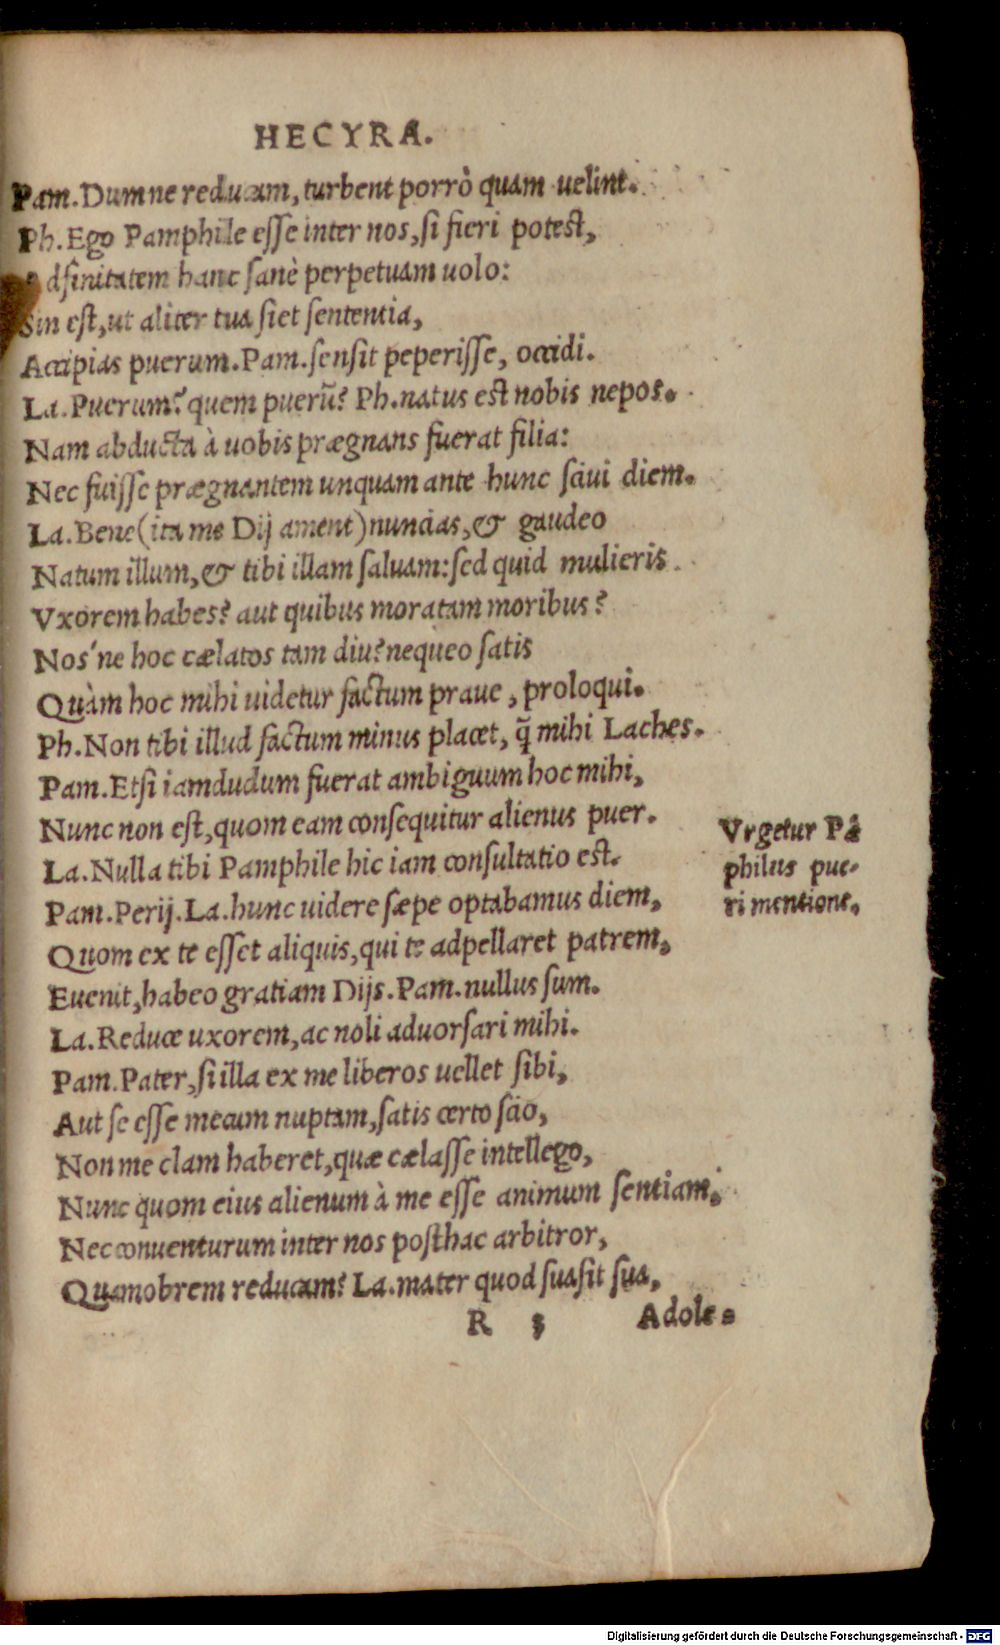 HECYRA.
Pam. Dum ne reducam, turbent porrò quam uelint.
Ph. Ego Pamphile esse inter nos, si fieri potest,
Adfinitatem hanc sanè perpetuam uolo:
Sin est, ut aliter tua siet sententia,
Accipias puerum. Pam. sensit peperisse, occidi.
La. Puerum? quem puerū? Ph. natus est nobis nepos.
Nam abducta à uobis prægnans fuerat filia:
Nec fuisse prægnantem unquam ante hunc sciui diem.
La. Bene (ita me Dij ament) nuncias, & gaudeo
Natum illum, & tibi illam saluam: sed quid mulieris
Vxorem habes? aut quibus moratam moribus?
Nos'ne hoc cælatos tam diu? nequeo satis
Quàm hoc mihi uidetur factum praue, proloqui.
Ph. Non tibi illud factum minus placet, q̃ mihi Laches.
Pam. Etsi iamdudum fuerat ambiguum hoc mihi,
Nunc non est, quom eam consequitur alienus puer.
La. Nulla tibi Pamphile hic iam consultatio est.
Pam. Perij. La. hunc uidere sæpe optabamus diem,
Quom ex te esset aliquis, qui te adpellaret patrem,
Euenit, habeo gratiam Dijs. Pam. nullus sum.
La. Reduce uxorem, ac noli aduorsari mihi.
Pam. Pater, si illa ex me liberos uellet sibi,
Aut se esse mecum nuptam, satis certo scio,
Non me clam haberet, quæ cælasse intellego,
Nunc quom eius alienum à me esse animum sentiam,
Nec conuenturum inter nos posthac arbitror,
Quamobrem reducam? La. mater quod suasit sua,
R 5 Adole-
Vrgetur Pā
philus pue-
ri mentione.
Digitalisierung gefördert durch die Deutsche Forschungsgemeinschaft - DFG